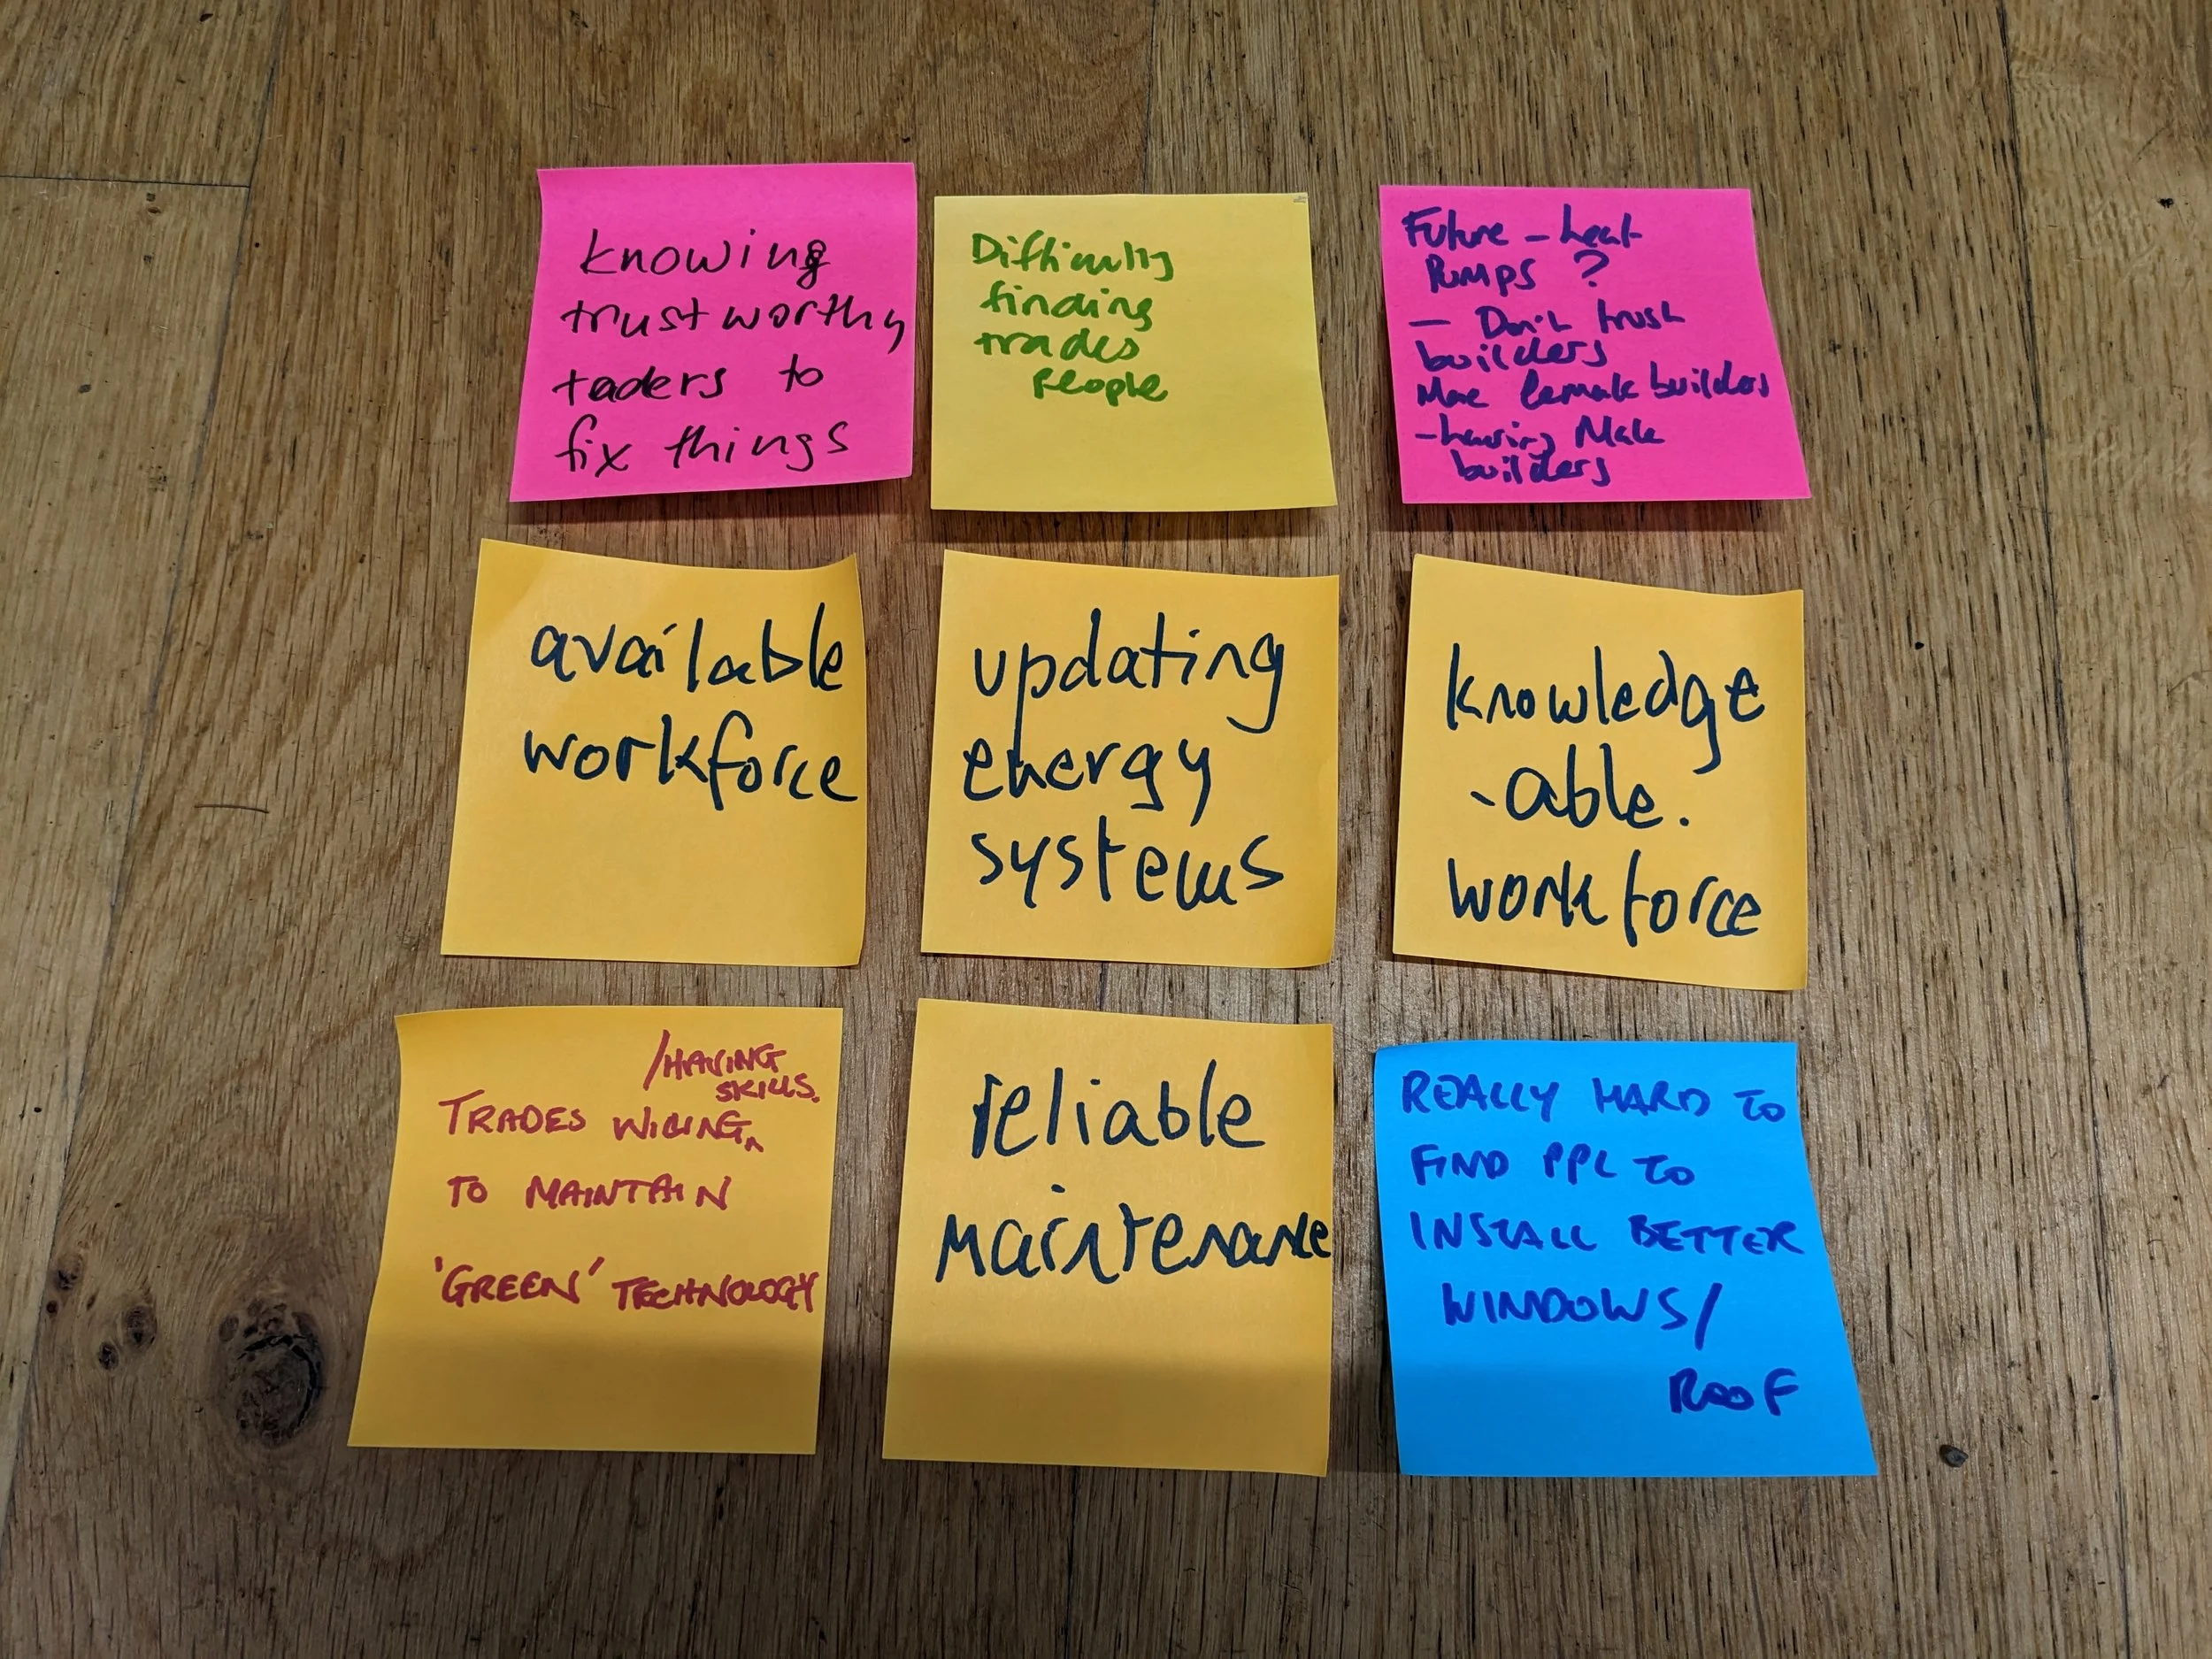 knowing
trustworthy
taders to
fix things
Difficulty
finding
trades
people
Future - heat
Pumps ?
- Don't trust
builders
More female builders
- having Male
builders
available
workforce
updating
energy
systems
knowledge
-able.
workforce
/HAVING
SKILLS.
TRADES WILLING^
TO MAINTAIN
'GREEN' TECHNOLOGY
reliable
maintenance
REALLY HARD TO
FIND PPL TO
INSTALL BETTER
WINDOWS/
ROOF